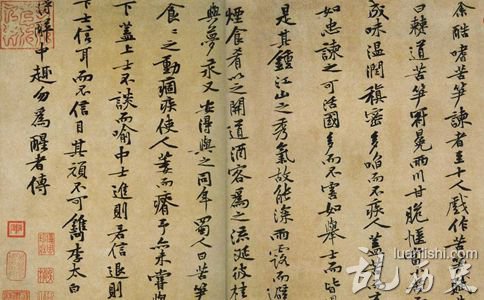 余酷嗜苦笋諫者至十人戲作苦笋
曰僰道苦笋冠冕兩川甘脆愜當
成味溫潤縝密多啗而不疾人蓋苦
如忠諫之可活國多而不害如舉士而皆
是其鍾江山之秀氣故能深雨露而避
煙食肴以之開道酒客為之流涎彼桂
與夢永又安得與之同年蜀人曰苦笋
食〻之動痼疾使人萎而瘠予亦未嘗
下蓋上士不談而喻中士進則若信退則
下士信耳而不信目其頑不可鐫李太白
得醉中趣勿為醒者傳
luanlishi.com
乱历史